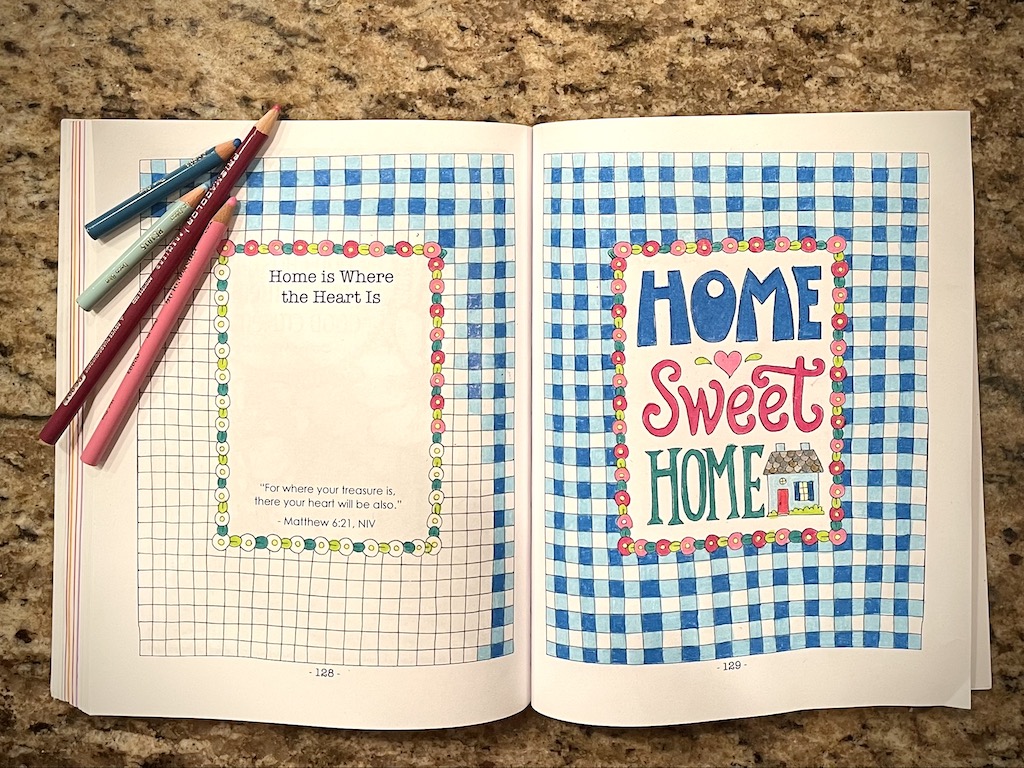 Home is Where
the Heart Is
"For where your treasure is,
there your heart will be also."
- Matthew 6:21, NIV
- 128 -
HOME
Sweet
HOME
- 129 -
PRISMACOLOR